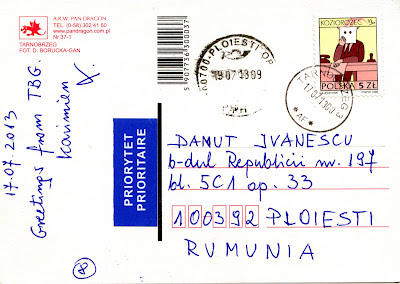 A.R.W. PAN DRAGON
TEL. (0-58) 302 41 60
www.pandragon.com.pl
Nr 37-1
TARNOBRZEG
FOT. D. BORUCKA-GAN
17.07.2013
Greetings from TBG.
Kazimien
5907736300037
100700-PLOIESTI OP
19.07.13.09
KOZIOROŻEC
POLSKA 5 ZŁ
TARNOBRZEG 3
17.07.13 00
*AF*
PRIORYTET
PRIORITAIRE
DANUT IVANESCU
b-dul Republicii nr. 197
bl. 5C1 ap. 33
100392 PLOIESTI
RUMUNIA